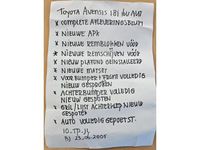 TOYOTA AVENSIS 1.8I
* COMPLETE AFLEVERINGSBEURT
* NIEUWE APK
* NIEUWE REMBLOKKEN VOOR
* NIEUWE REMSCHIJVEN VOOR
* NIEUW PLAFOND GEÏNSTALLEERD
* NIEUWE
* VOORBUMPER + FRONT VOLLEDIG
NIEUW GESPOTEN
* ACHTERBUMPER VOLLEDIG
NIEUW GESPOTEN
* GRIL/LIJST ACHTERKLEP NIEUW
GESPOTEN
* AUTO VOLLEDIG GEPOETST.